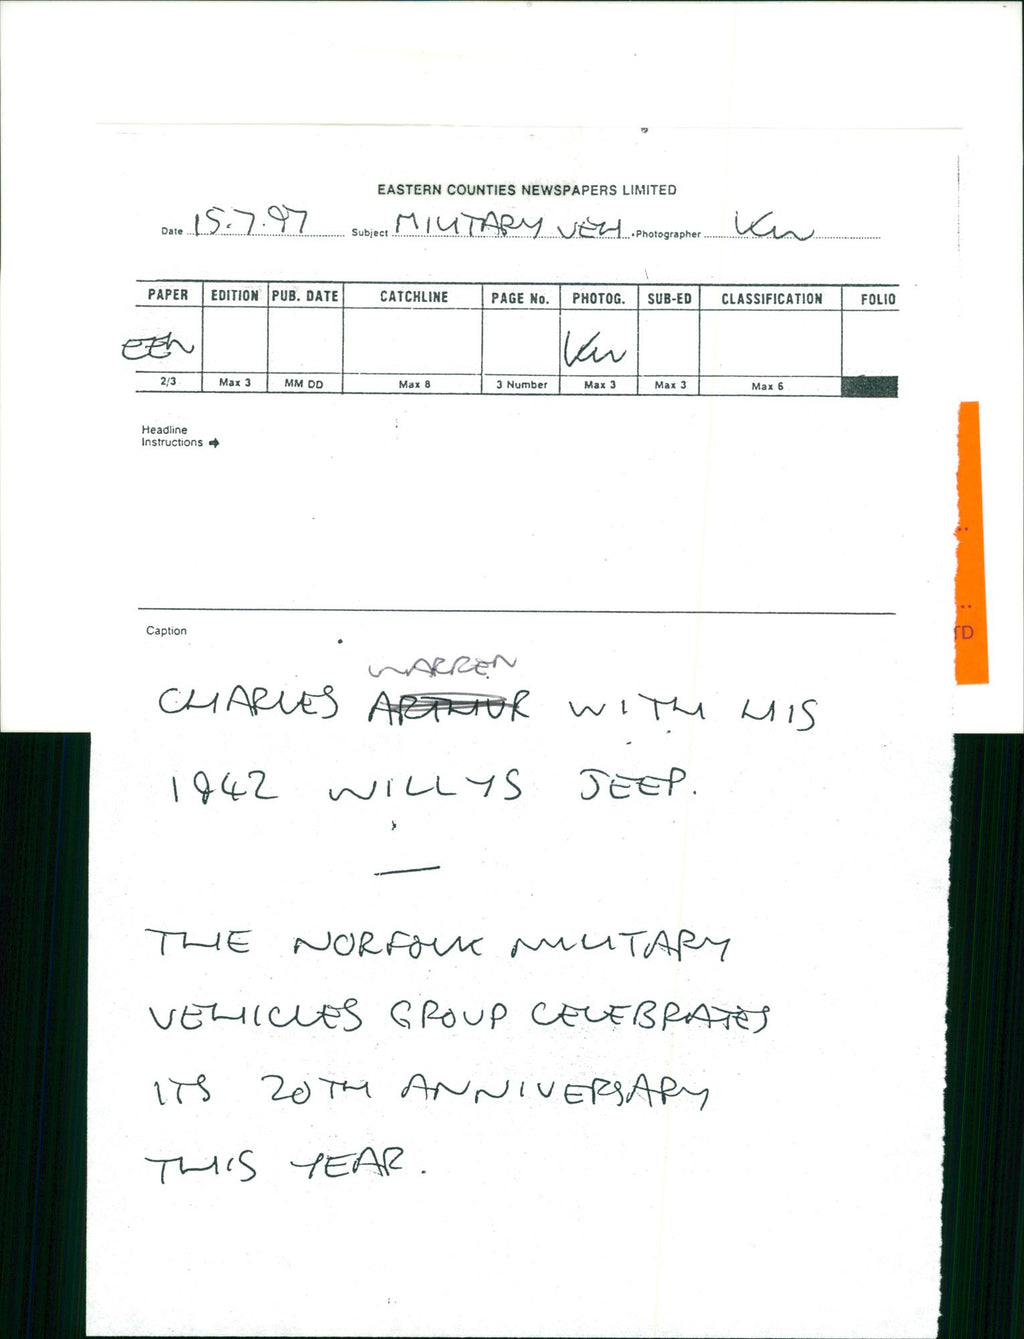 EASTERN COUNTIES NEWSPAPERS LIMITED
Date 15.7.97 Subject MILITARY VEH. Photographer KW
PAPER EDITION PUB. DATE CATCHLINE PAGE No. PHOTOG. SUB-ED CLASSIFICATION FOLIO
EEN KW
2/3 Max 3 MM DD Max 8 3 Number Max 3 Max 3 Max 6
Headline
Instructions →
Caption
WARREN
CHARLES ARTHUR WITH HIS
1942 WILLYS JEEP.
—
THE NORFOLK MILITARY
VEHICLES GROUP CELEBRATES
ITS 20TH ANNIVERSARY
THIS YEAR.
TD